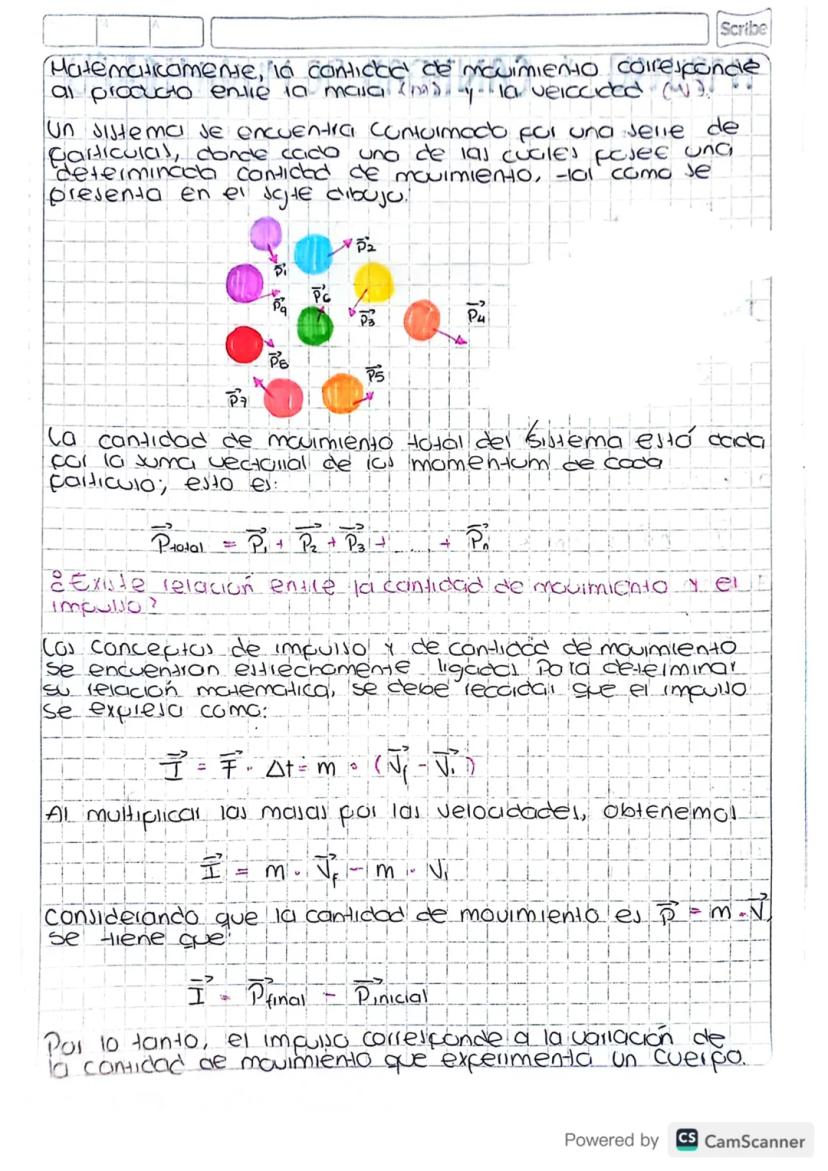 Scribe
Matemáticamente, la cantidad de movimiento corresponde
al producto entre la masa (m) y la velocidad (v).
Un sistema se encuentra conformado por una serie de
partículas, donde cada una de las cuales posee una
determinada cantidad de movimiento, tal como se
presenta en el sgte dibujo:
P⃗1
P⃗2
P⃗9
P⃗6
P⃗3
P⃗4
P⃗8
P⃗5
P⃗7
La cantidad de movimiento total del sistema está dada
por la suma vectorial de los momentum de cada
partícula; esto es:
P⃗total = P⃗1 + P⃗2 + P⃗3 + ...... + P⃗n
¿Existe relación entre la cantidad de movimiento y el
impulso?
Los conceptos de impulso y de cantidad de movimiento
se encuentran estrechamente ligados. Para determinar
su relación matemática, se debe recordar que el impulso
se expresa como:
I⃗ = F⃗ · Δt = m · (V⃗f - V⃗i)
Al multiplicar las masas por las velocidades, obtenemos
I⃗ = m · V⃗f - m · Vi
Considerando que la cantidad de movimiento es P⃗ = m · V⃗,
se tiene que:
I⃗ = P⃗final - P⃗inicial
Por lo tanto, el impulso corresponde a la variación de
la cantidad de movimiento que experimenta un cuerpo.
Powered by CS CamScanner